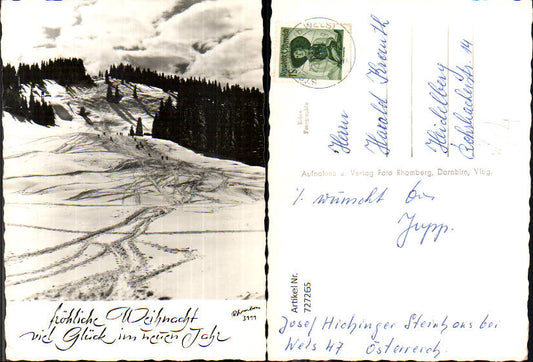 fröhliche Weihnacht
viel Glück im neuen Jahr
Rhomberg
3999
WELS 1
Echte
Fotografie
Herrn
Harald Krauth
Heidelberg
14
Aufnahme u. Verlag Foto Rhomberg, Dornbirn, Vlbg.
wünscht
Jupp.
Artikel Nr.
727265
Josef Hichinger Steinhaus bei
Wels 47 Österreich.